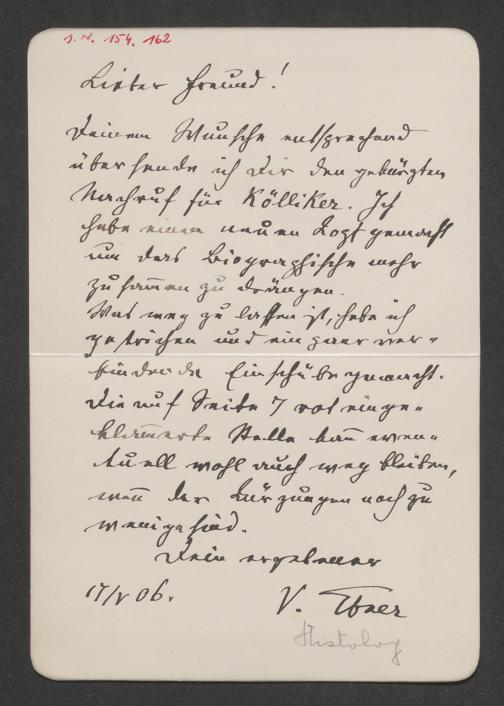 I.N. 154.162
Lieber Freund!
Deinem Wunsche entsprechend
übersende ich Dir den gekürzten
Nachruf für Kölliker. Ich
habe einen neuen Kopf gemacht
um das Biographische mehr
zusam̄en zu drängen.
Was weg zu lassen ist, habe ich
gestrichen und ein paar ver-
bindende Einschübe gemacht.
Die auf Seite 7 rot einge-
klam̄erte Stelle kan̄ even-
tuell wohl auch weg bleiben,
wen̄ der Kürzungen noch zu
wenige sind.
Dein ergebener
17/V 06.
V. Ebner
Histolog